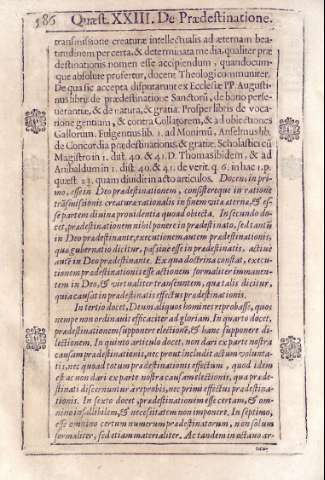 186 Quæst. XXIII. De Prædestinatione.
transmissione creaturæ intellectualis ad æternam bea-
titudinem per certa, & determinata media. qualiter præ
destinationis nomen esse accipiendum, quandocum-
que absolute profertur, docent Theologi communiter.
De qua sic accepta disputarunt ex Ecclesiæ PP. Augusti-
nus libris de prædestinatione Sanctorū, de bono perse-
uerantiæ, & de natura, & gratia. Prosper libris de voca-
tione gentium, & contra Collatorem, & ad obiectiones
Gallorum. Fulgentius lib. 1. ad Monimū, Anselmus lib.
de Concordia prædestinationis, & gratiæ. Scholastici cū
Magistro in 1. dist. 40. & 41. D. Thomas ibidem, & ad
Anibaldum in 1. dist. 40. & 41. de verit. q. 6. in hac 1. p.
quæst. 23. quam diuidit in acto articulos. Docens in pri-
mo, esse in Deo prædestinationem, consistereque in ratione
trāsmissionis creaturæ rationalis in finem vitæ æternæ, & es-
se partem diuinæ prouidentiæ quoad obiecta. In secundo do-
cet, prædestinationem nihil ponere in prædestinato, sed tantū
in Deo prædestinante, executionem autem prædestinationis,
quæ gubernatio dicitur, passiuè esse in prædestinatis, actiuè
autē in Deo prædestinante. Ex qua doctrina constat, execu-
tionem prædestinationis esse actionem formaliter immanen-
tem in Deo, & virtualiter transeuntem, quæ talis dicitur,
quia causat in prædestinatis effectus prædestinationis.
In tertio docet, Deum aliquos homines reprobasse, quos
nempe non ordinauit efficaciter ad gloriam. In quarto docet,
prædestinationem supponere electionē, & hanc supponere di-
lectionem. In quinto articulo docet, non dari ex parte nostra
causam prædestinationis, nec prout includit actum volunta-
tis, nec quoad totum prædestinationis effectum, quod idem
est ac non dari ex parte nostra causam electionis, qua præde-
stinati discernuntur à reprobis, nec primi effectus prædestina-
tionis. In sexto docet, prædestinationem esse certam, & om-
nino infallibilem, & necessitatem non imponere. In septimo,
esse omnino certum numerum prædestinatorum, non solum
formaliter, sed etiam materialiter. Ac tandem in octauo ar-